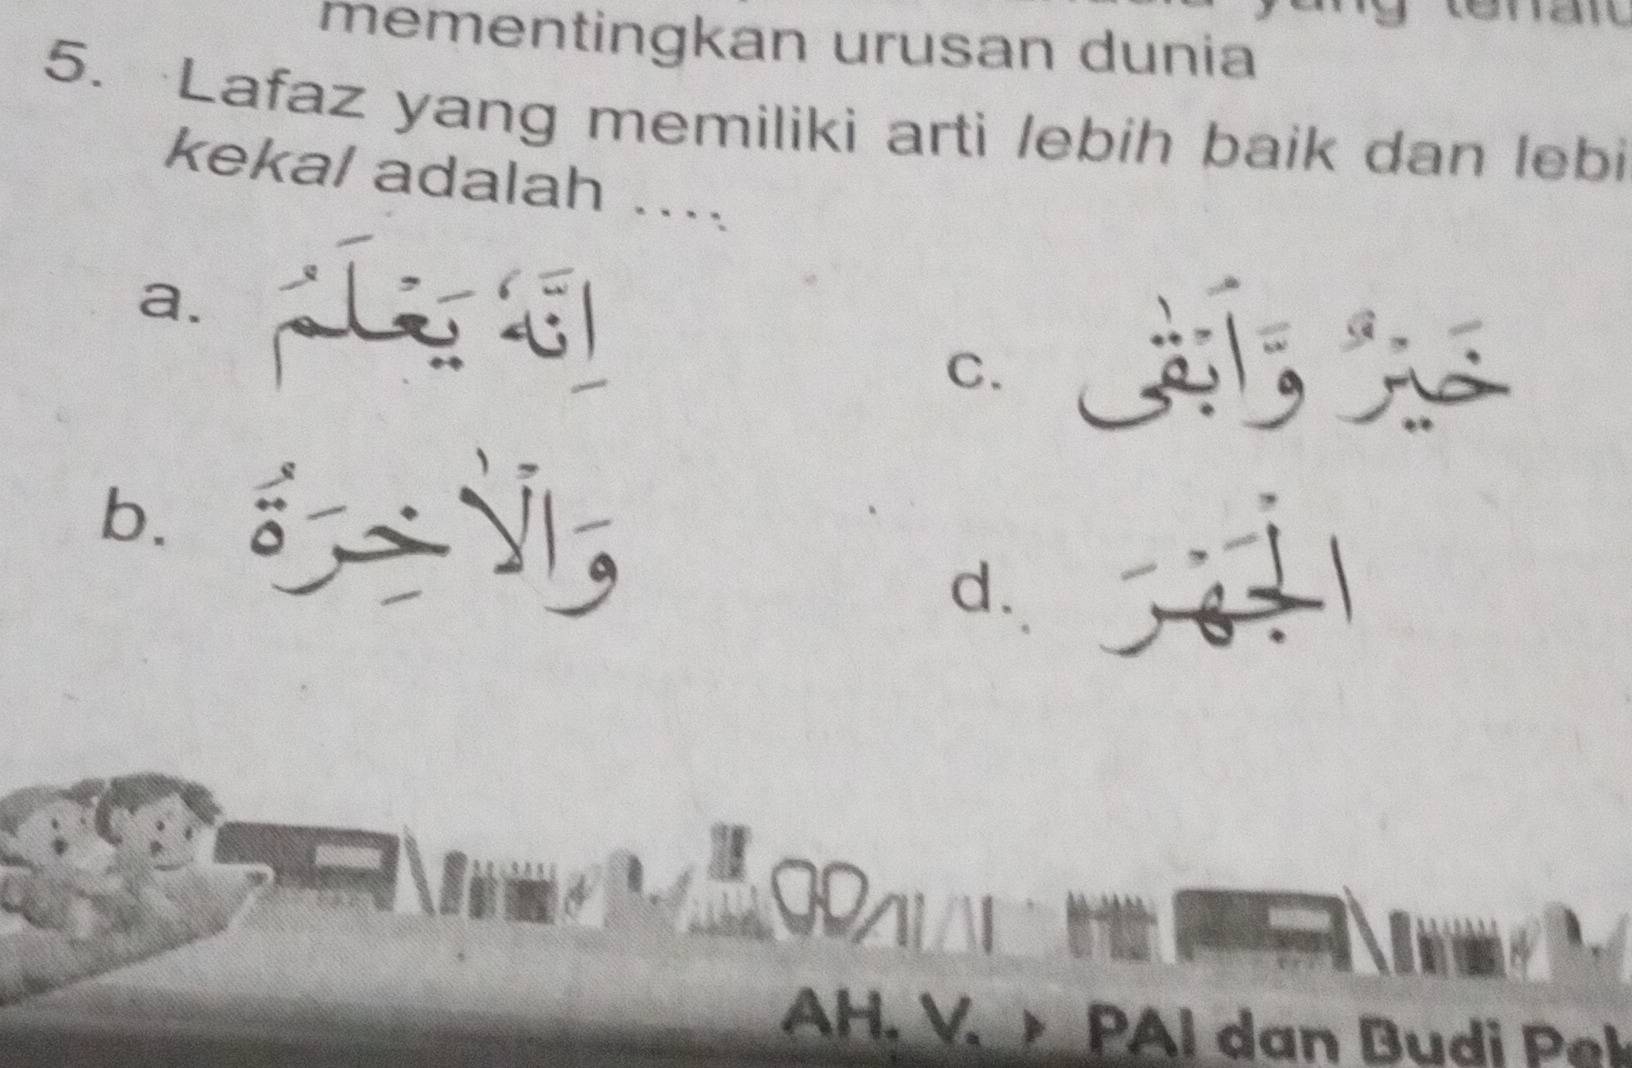 mementingkan urusan dunia
5. Lafaz yang memiliki arti lebih baik dan lebi
kekal adalah ....
a. اِنَّهٗ يَعْلَمُ
c. خَيْرٌ وَّاَبْقٰى
b. وَالْاٰخِرَةُ
d. الْجَهْرَ
AH. V. PAI dan Budi Pek